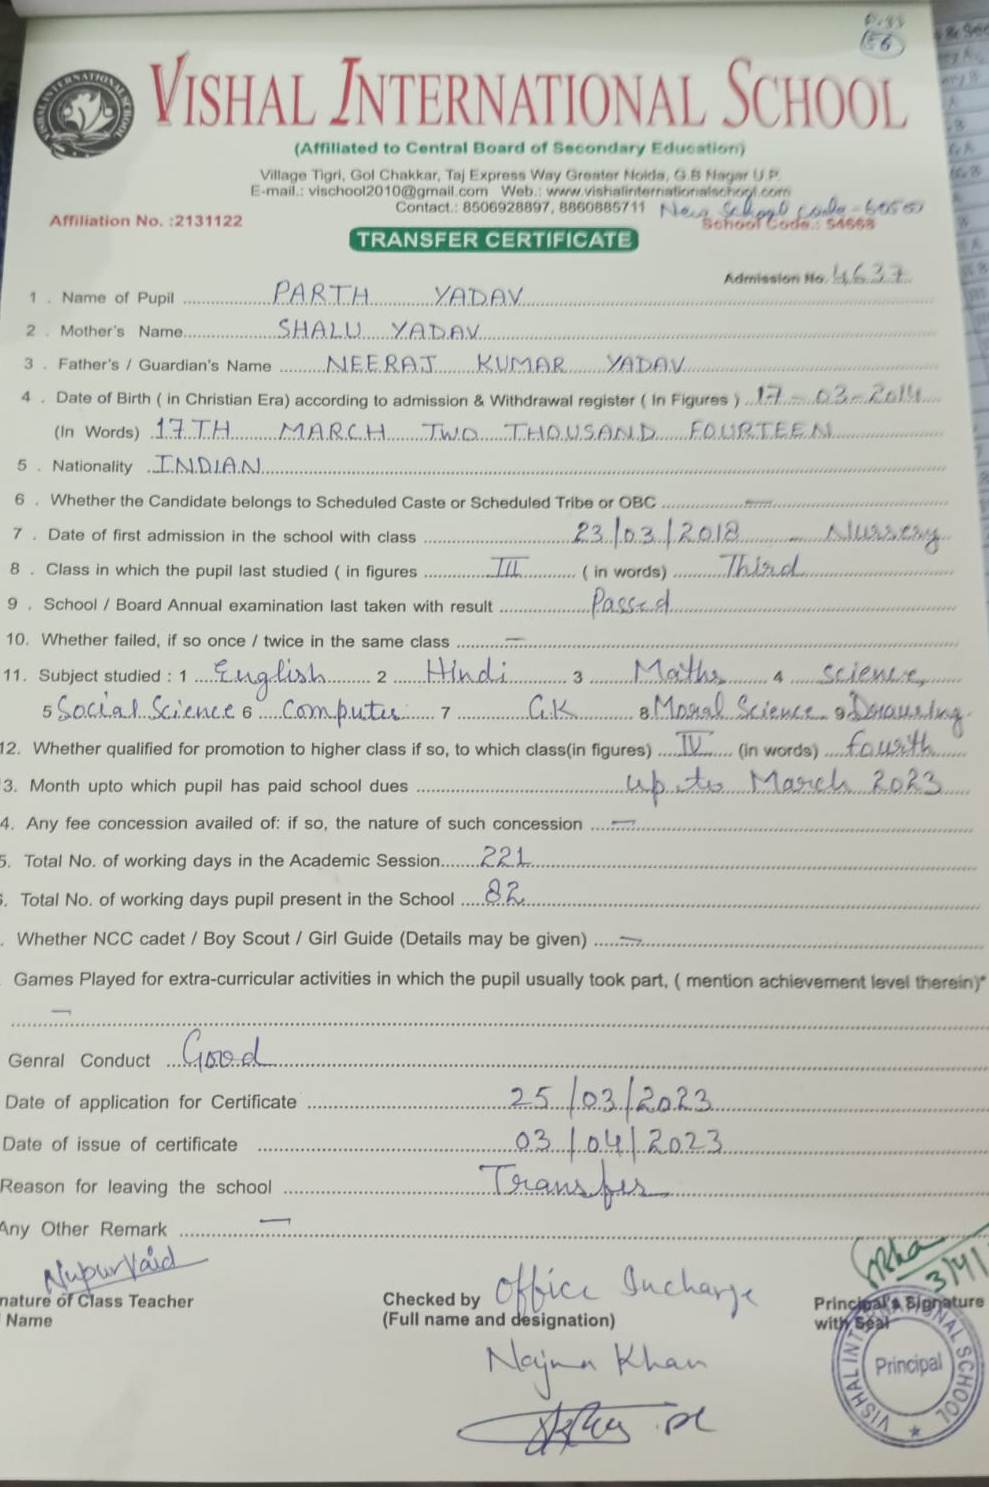 156
VISHAL INTERNATIONAL SCHOOL
(Affiliated to Central Board of Secondary Education)
Village Tigri, Gol Chakkar, Taj Express Way Greater Noida, G.B Nagar U.P.
E-mail.: vischool2010@gmail.com Web.: www.vishalinternationalschool.com
Contact.: 8506928897, 8860885711 New School Code -
Affiliation No. :2131122 School Code.: 54668
TRANSFER CERTIFICATE
Admission No. 4637
1 . Name of Pupil PARTH YADAV
2 . Mother's Name SHALU YADAV
3 . Father's / Guardian's Name NEERAJ KUMAR YADAV
4 . Date of Birth ( in Christian Era) according to admission & Withdrawal register ( In Figures ) 17-03-2014
(In Words) 17TH MARCH TWO THOUSAND FOURTEEN
5 . Nationality INDIAN
6 . Whether the Candidate belongs to Scheduled Caste or Scheduled Tribe or OBC —
7 . Date of first admission in the school with class 23/03/2018 Nursery
8 . Class in which the pupil last studied ( in figures III ( in words) Third
9 . School / Board Annual examination last taken with result Passed
10. Whether failed, if so once / twice in the same class —
11. Subject studied : 1 English 2 Hindi 3 Maths 4 Science,
5 Social Science 6 Computer 7 G.K 8 Moral Science 9 Drawing.
12. Whether qualified for promotion to higher class if so, to which class(in figures) IV (in words) fourth
3. Month upto which pupil has paid school dues up to March 2023
4. Any fee concession availed of: if so, the nature of such concession —
5. Total No. of working days in the Academic Session 221
. Total No. of working days pupil present in the School 82
. Whether NCC cadet / Boy Scout / Girl Guide (Details may be given) —
Games Played for extra-curricular activities in which the pupil usually took part, ( mention achievement level therein)*
—
Genral Conduct Good
Date of application for Certificate 25/03/2023
Date of issue of certificate 03/04/2023
Reason for leaving the school Transfer
Any Other Remark —
Nupur Vaid
nature of Class Teacher
Name
Checked by Office Incharge
(Full name and designation)
Najma Khan
3/4/
Principal's Signature
with Seal
VISHAL INTERNATIONAL SCHOOL
Principal